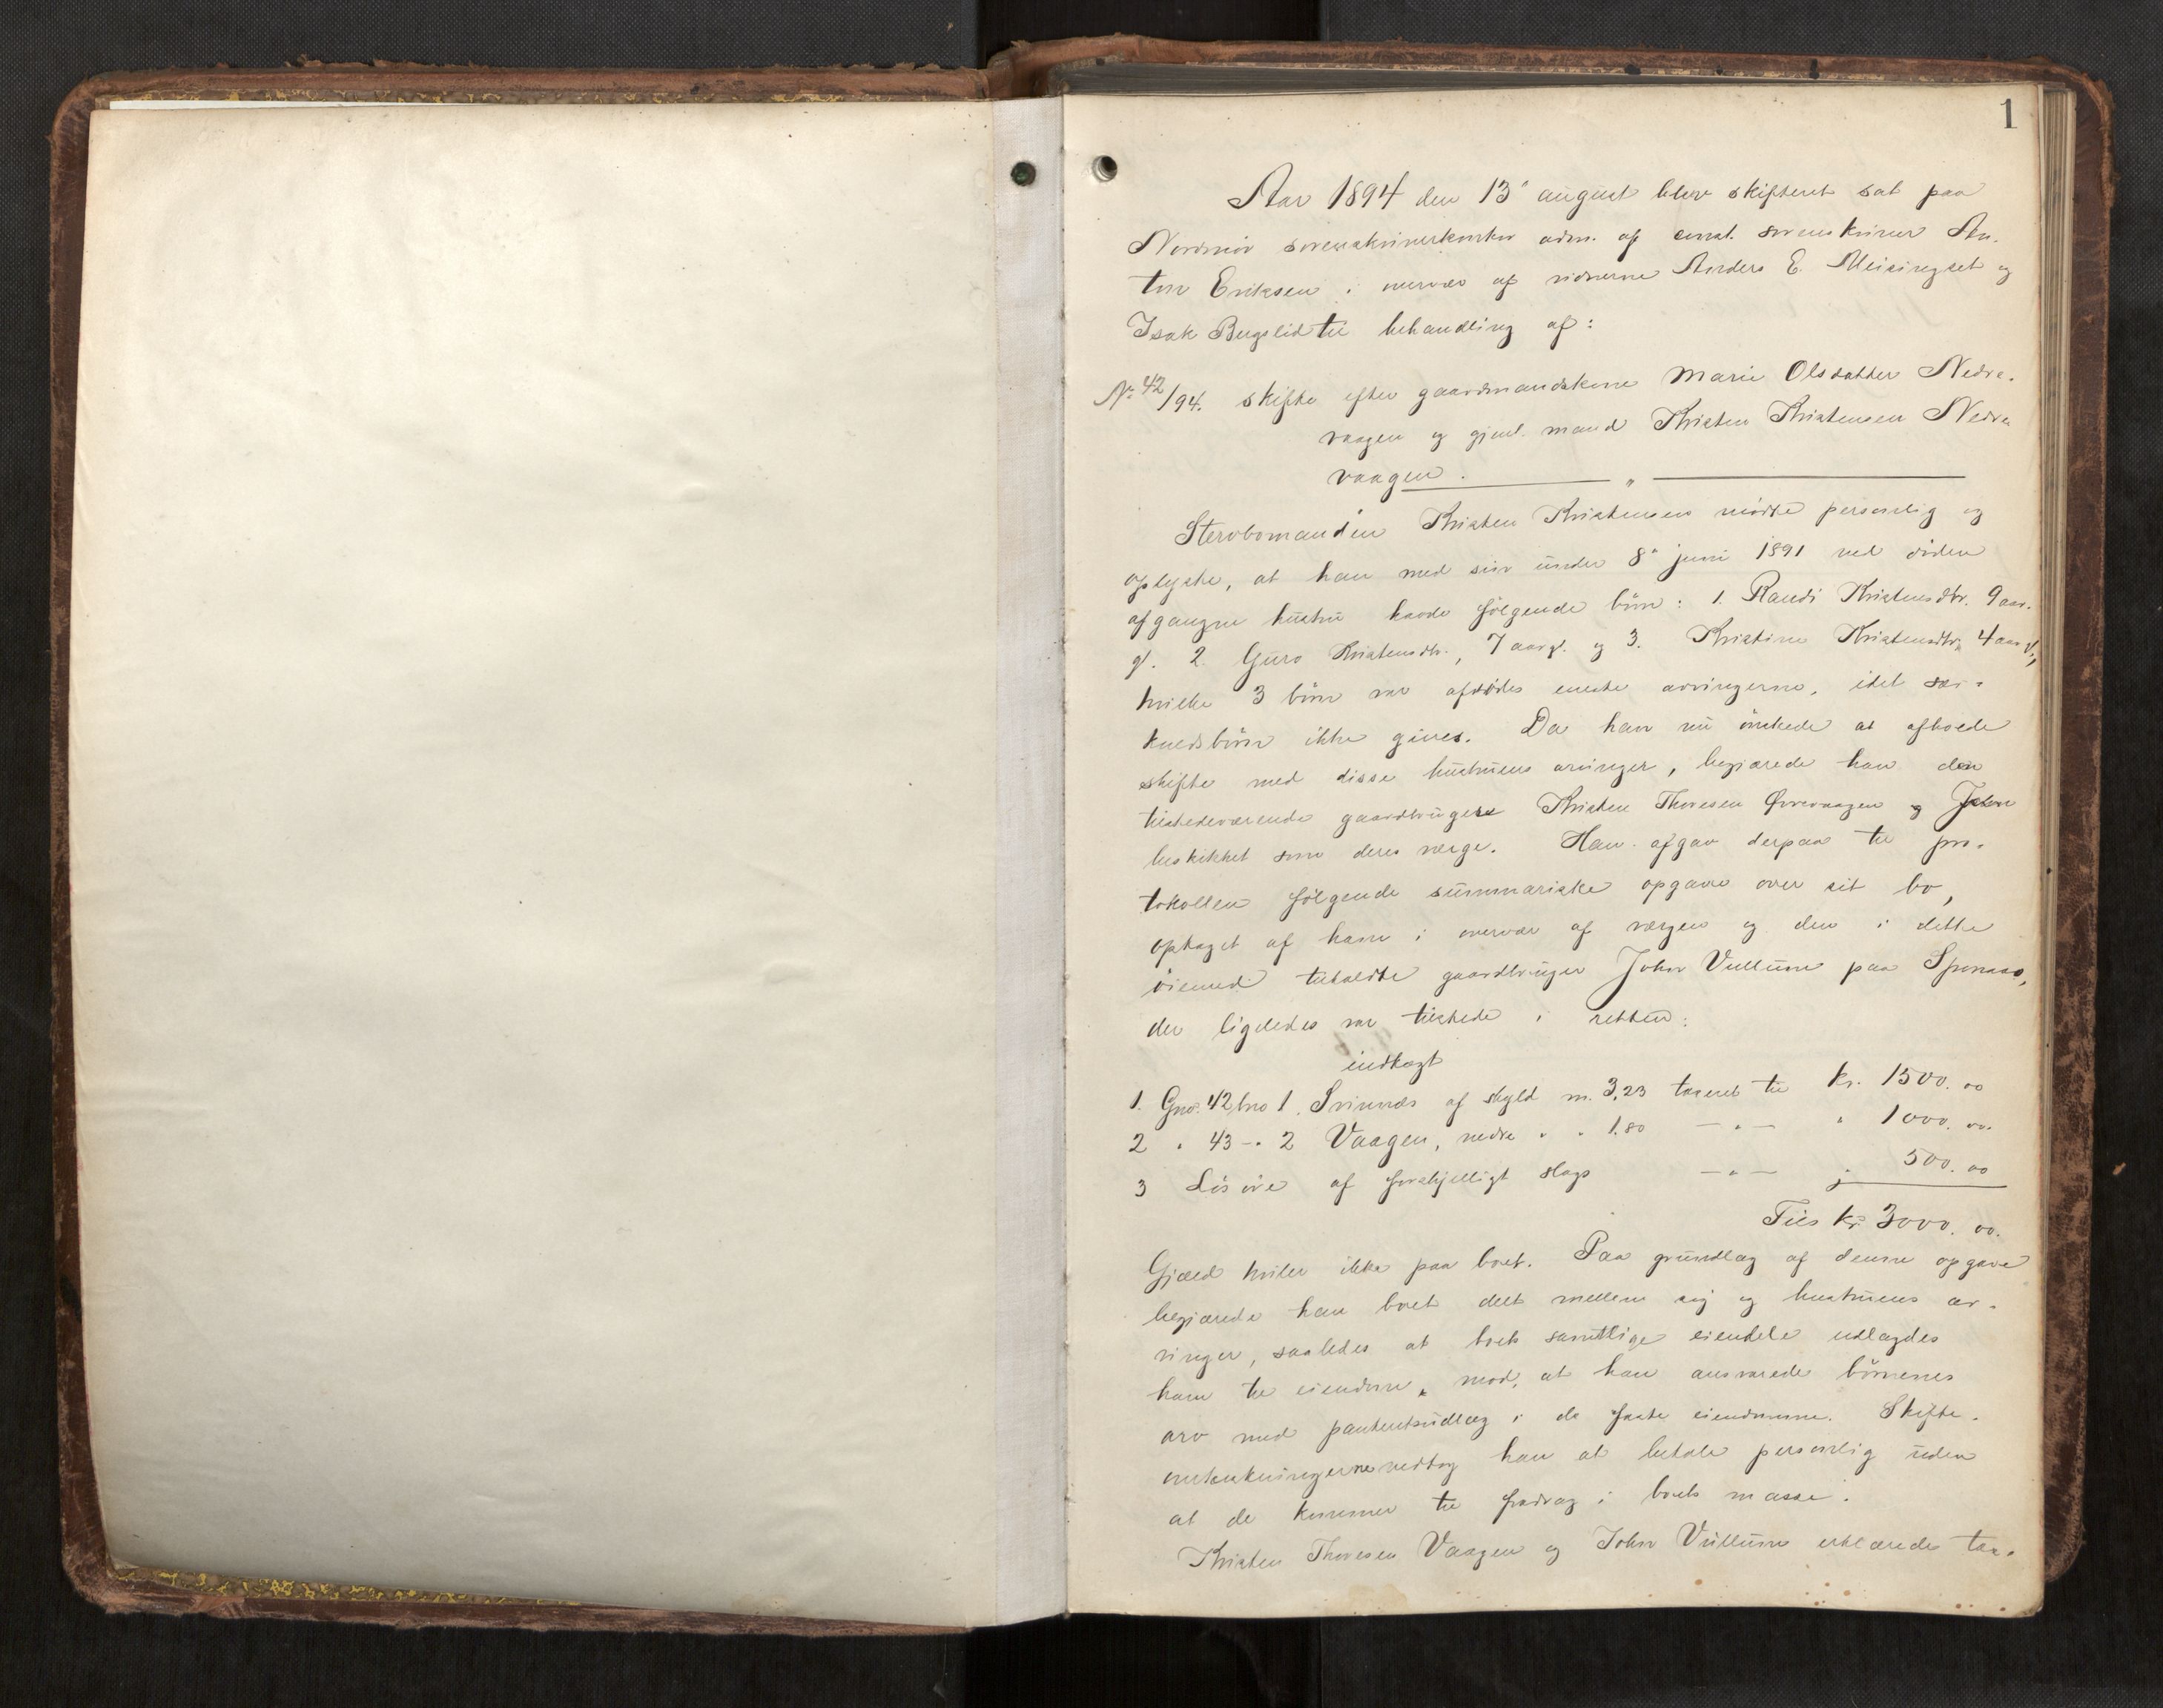 1
Aar 1894 den 13' august blev skifteret sat paa
Nordmør sorenskriverkontor adm. af const. sorenskriver An-
ton Eriksen i overvær af vidnerne Anders E. Meisingset og
Isak Bugslid til behandling af:
No 42/94. skifte efter gaardmandskone Marie Olsdatter Nedre-
vaagen og gjenl. mand Kristen Kristensen Nedre
vaagen. "
Stervbomanden Kristen Kristensen mødte personlig og
oplyste, at han med sin under 8' juni 1891 ved døden
afgangne hustru havde følgende børn: 1. Randi Kristensdtr. 9 aar.
gl. 2. Guro Kristensdtr., 7 aar gl. og 3. Kristine Kristensdtr. 4 aar gl.,
hvilke 3 børn var afdødes eneste arvingerne, idet sær-
kuldsbørn ikke gives. Da han nu ønskede at afholde
skifte med disse hustruens arvinger, begjærede han den
tilstedeværende gaardbruger Kristen Thoresen Øvrevaagen og John
beskikket som deres værge. Han afgav derpaa til pro-
tokollen følgende summariske opgave over sit bo,
optaget af ham i overvær af værgen og den i dette
øiemed tilkaldte gaardbruger John Vullum paa
der ligeledes var tilstede i retten:
indtagt
1. Gno. 42 bno 1. Svinnes af skyld m. 3,23 taxeret til kr. 1500. 00
2 " 43 - " 2 Vaagen, nedre " " 1.80 — " — " 1000. 00.
3 Løsøre af forskjelligt slags — " — " 500. 00
Tils kr. 3000. 00.
Gjæld hviler ikke paa boet. Paa grundlag af denne opgave
begjærede han boet delt mellem sig og hustruens ar-
vinger, saaledes at boets samtlige eiendele udlagdes
ham til eiendom, mod, at han ansvarede børnenes
arv med panteudlæg i de faste eiendomme. Skifte-
omkostningerne vedtog han at betale personlig uden
at de kommer til fradrag i boets masse.
Kristen Thoresen Vaagen og John Vullum erklærede tax-